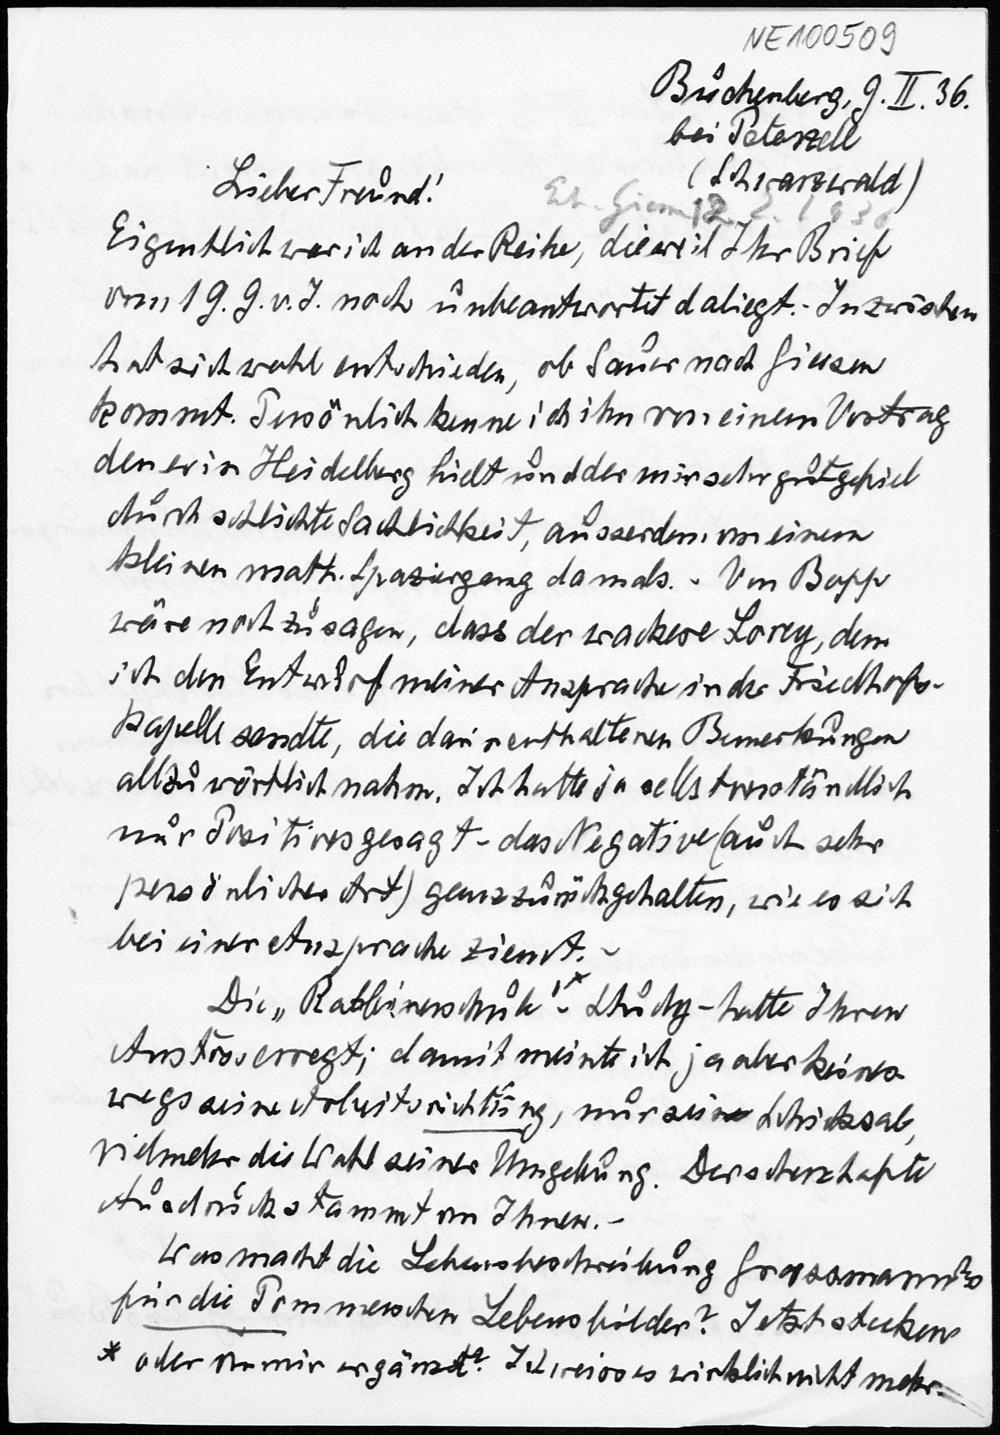 NE100509
Buchenberg, 9. II. 36.
bei Peterzell
(Schwarzwald)
Lieber Freund!
12. 2. 1936
Eigentlich war ich an der Reihe, dieweil Ihr Brief
vom 19. 9. v. J. noch unbeantwortet daliegt. - Inzwischen
hat sich wohl entschieden, ob Sauer nach Giessen
kommt. Persönlich kenne ich ihn von einem Vortrag
den er in Heidelberg hielt und der mir sehr gut gefiel
durch schlichte Sachlichkeit, ausserdem von einem
kleinen math. Spaziergang damals. - Von Bopp
wäre noch zu sagen, dass der wackere Lorey, dem
ich den Entwurf meiner Ansprache in der Friedhofs-
kapelle sandte, die darin enthaltenen Bemerkungen
allzu wörtlich nahm. Ich hatte ja selbstverständlich
nur Positives gesagt - das Negative (auch sehr
persönlicher Art) ganz zurückgehalten, wie es sich
bei einer Ansprache ziemt. -
Die „Rabbinerschule"* - Study - hatte Ihren
Anstoss erregt; damit meinte ich ja aber keines
wegs seine Arbeitsrichtung, nur sein Schicksal,
vielmehr die Wahl seiner Umgebung. Der scherzhafte
Ausdruck stammt von Ihnen. -
Was macht die Lebensbeschreibung Grassmann's
für die Pommerschen Lebensbilder? Jetzt stecken
* oder von mir ergänzt? Ich weiss es wirklich nicht mehr.